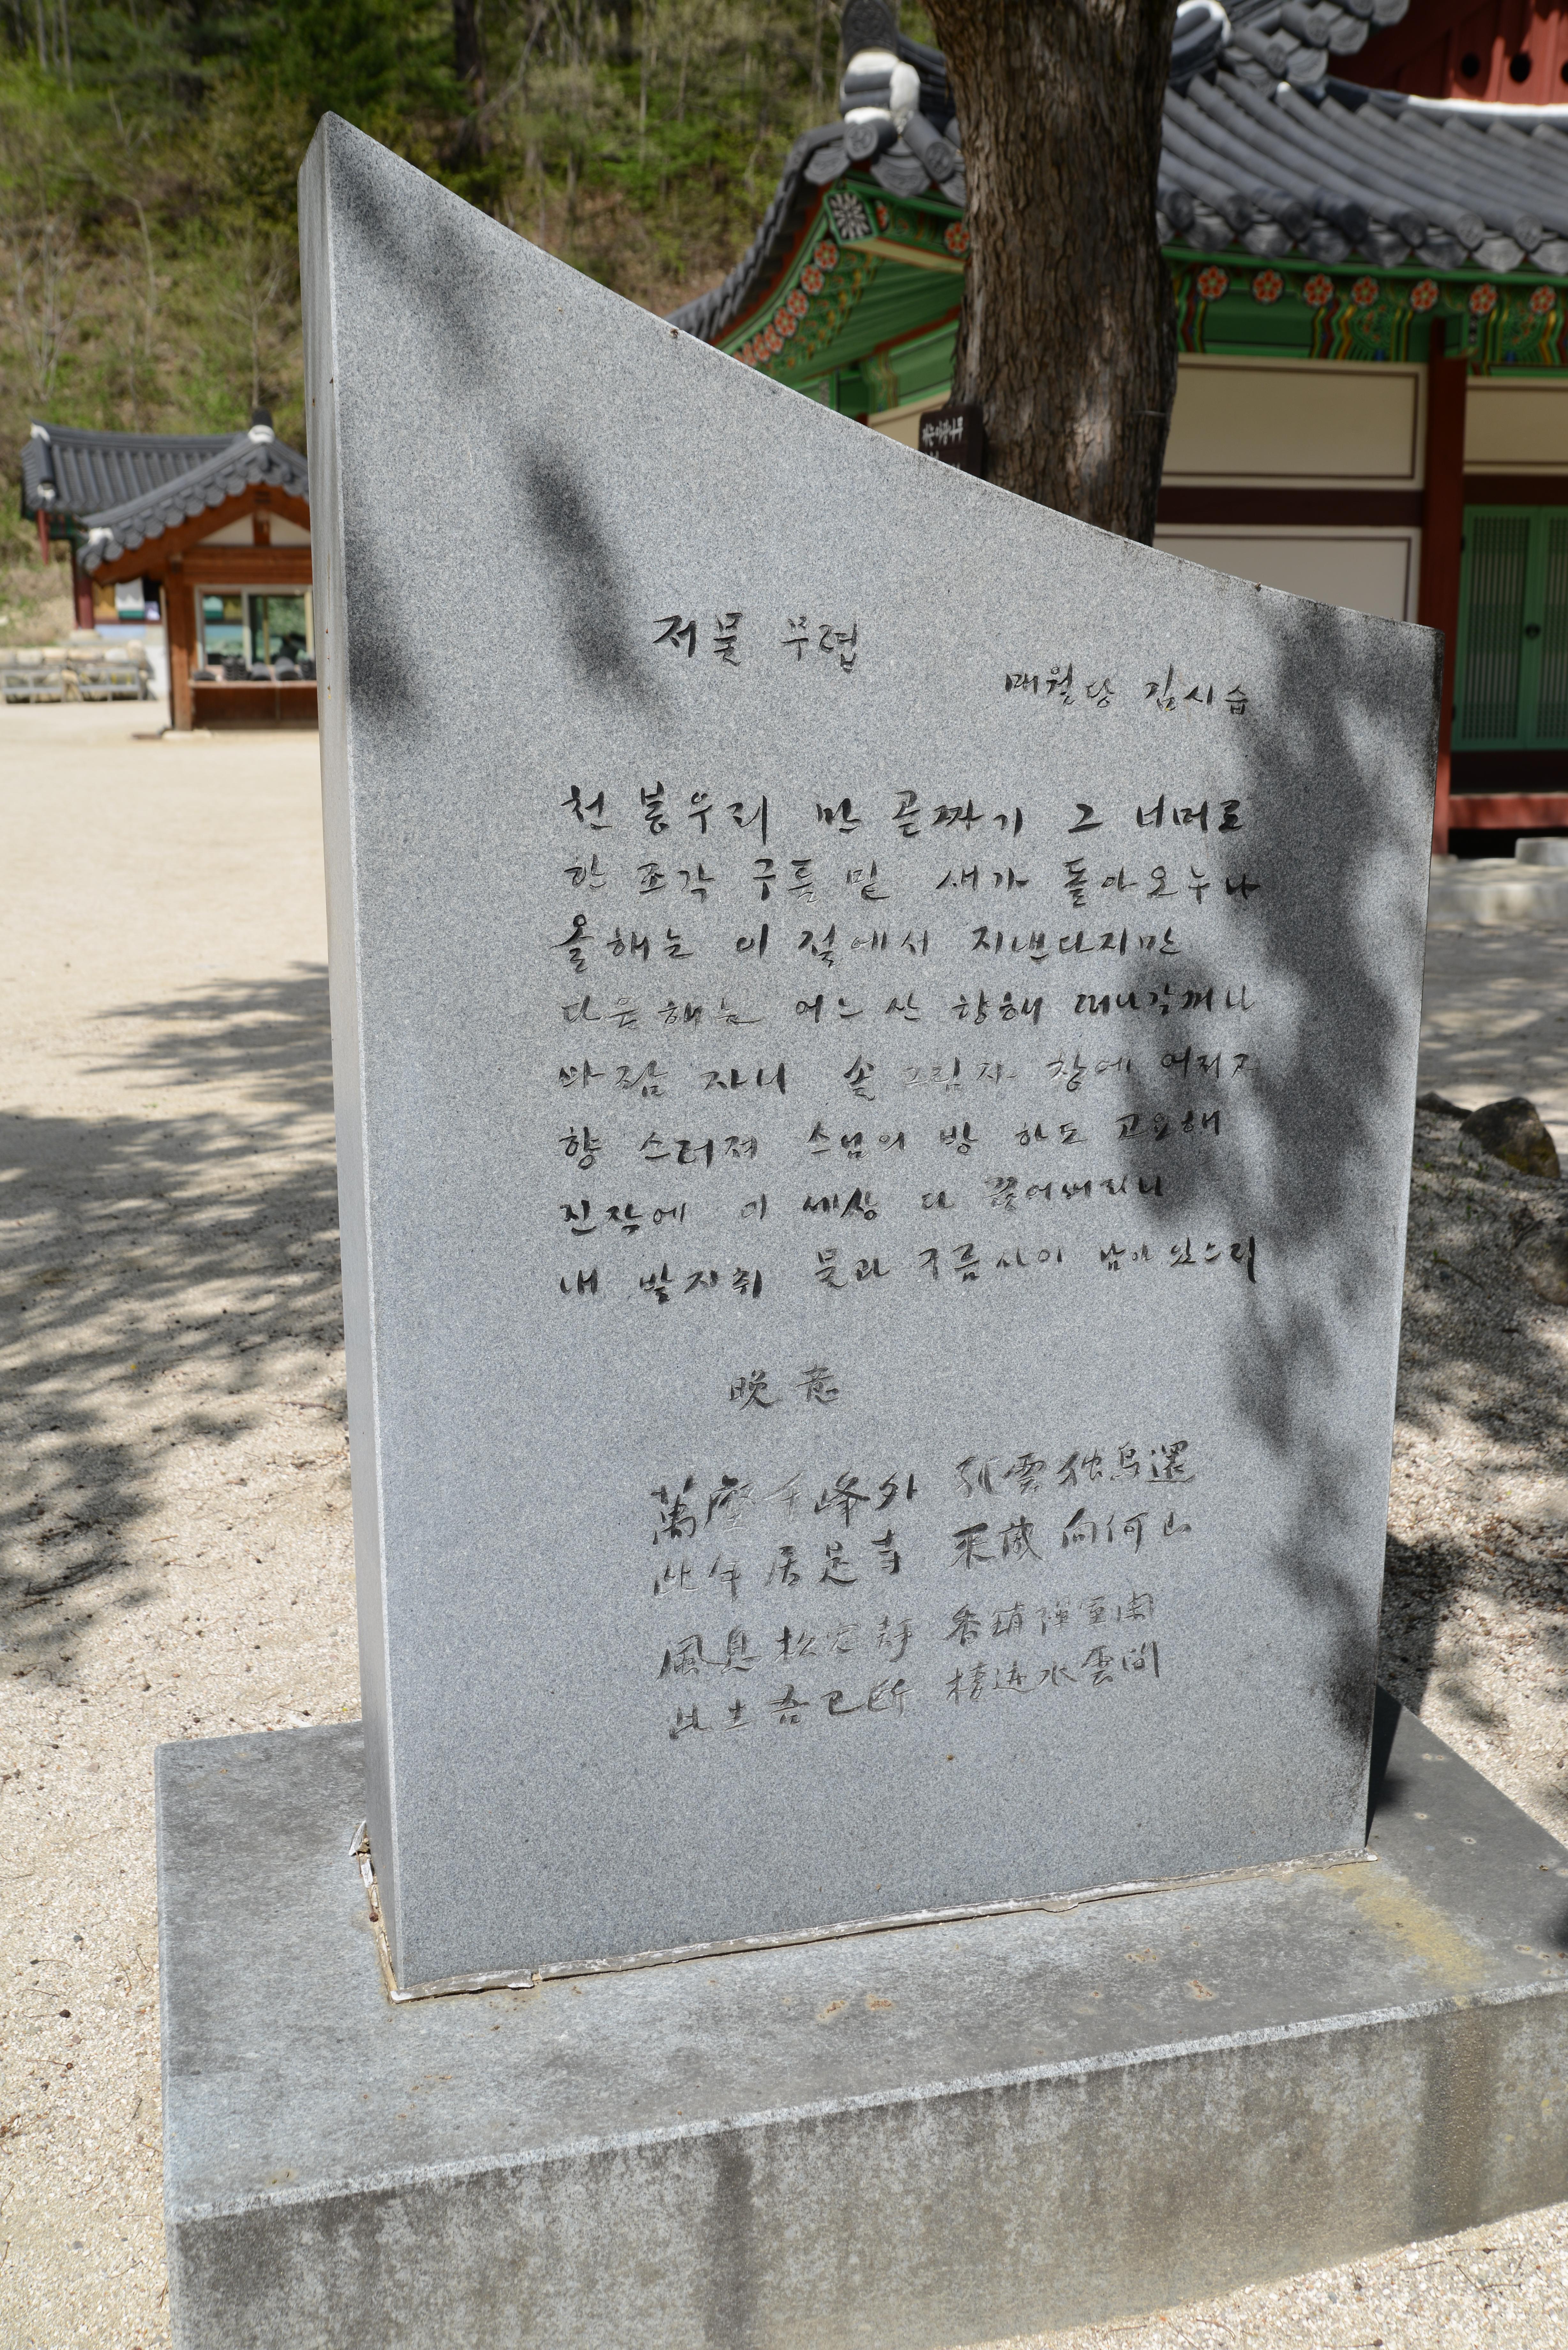 저물 무렵
매월당 김시습
천 봉우리 만 골짜기 그 너머로
한 조각 구름 밑 새가 돌아오누나
올해는 이 절에서 지낸다지만
다음 해는 어느 산 향해 떠나갈꺼나
바람 자니 솔 그림자 창에 어리고
향 스러져 스님의 방 하도 고요해
진작에 이 세상 다 끊어버리니
내 발자취 물과 구름사이 남아 있으리
晩意
萬壑千峰外 孤雲独鳥還
此年居是寺 来歲向何山
風息松窓静 香銷禪室閑
此生吾已断 棲迹水雲間